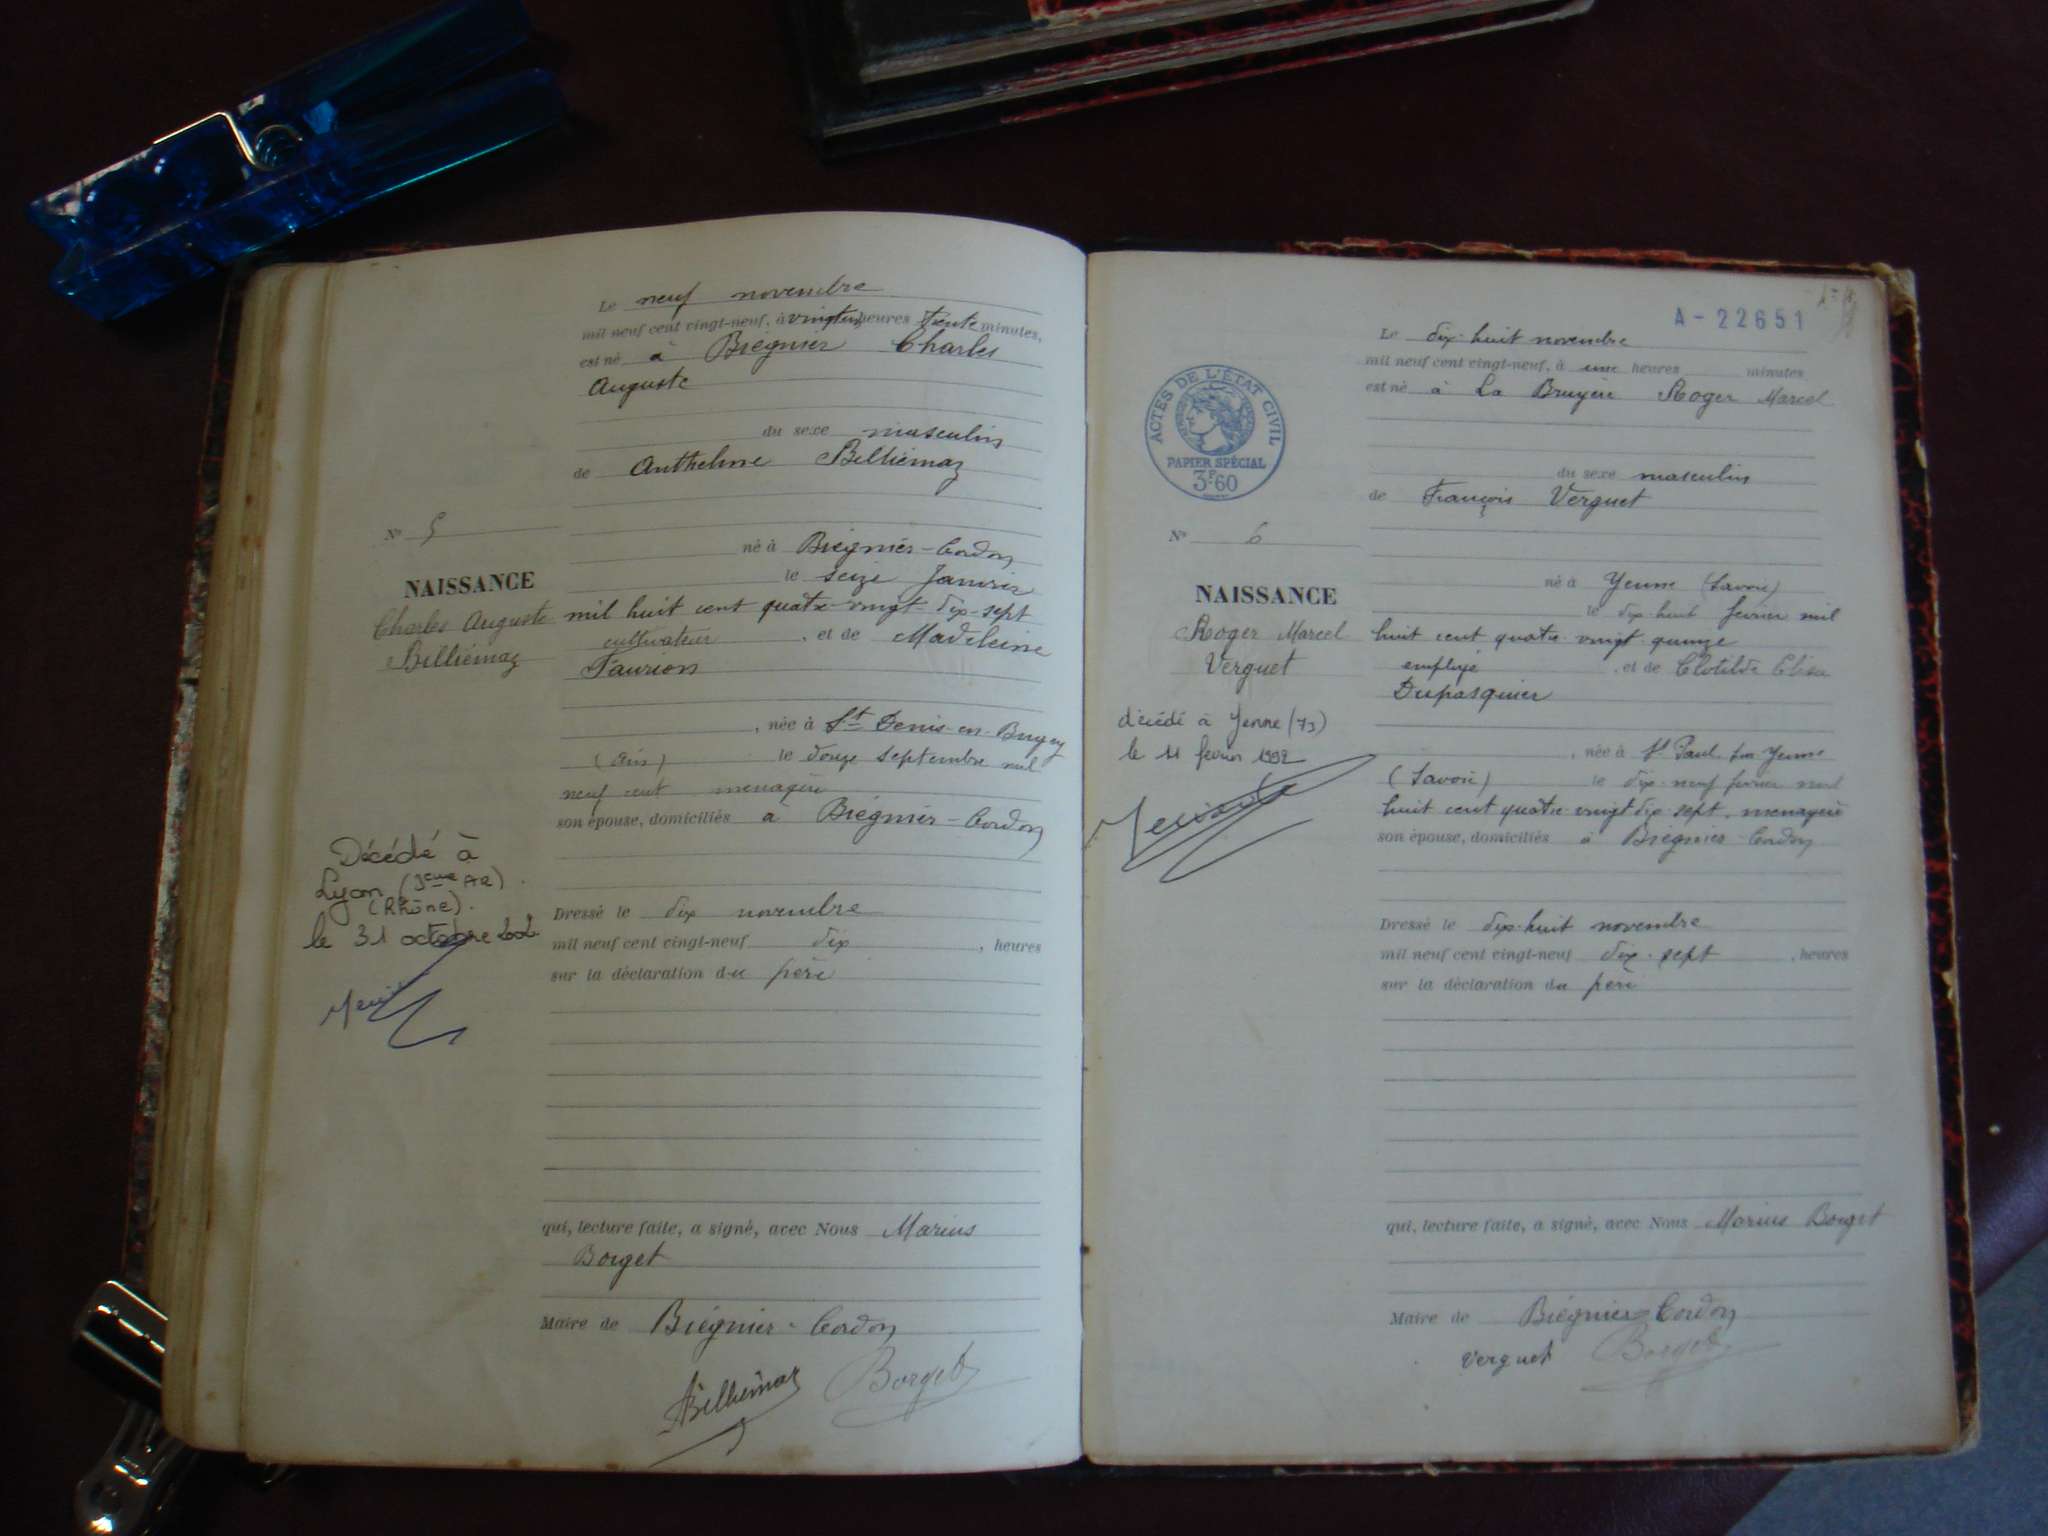 Le neuf novembre
mil neuf cent vingt-neuf, à vingt un heures trente minutes,
est né à Brégnier Charles
Auguste
du sexe masculin
de Anthelme Billiémaz
N° 5
né à Brégnier-Cordon
le seize Janvier
NAISSANCE
Charles Auguste
Billiémaz
mil huit cent quatre-vingt-dix-sept
cultivateur, et de Madeleine
Taurion
, née à St Denis-en-Bugey
(Ain) le douze septembre mil
neuf cent menagère
son épouse, domiciliés à Brégnier-Cordon
Décédé à
Lyon (3ème Ar)
(Rhône).
le 31 octobre
Dressé le dix novembre
mil neuf cent vingt-neuf dix, heures
sur la déclaration du père
qui, lecture faite, a signé, avec Nous Marius
Borget
Maire de Brégnier-Cordon
Billiémaz Borget
A-22651
Le dix-huit novembre
mil neuf cent vingt-neuf, à une heures minutes
est né à La Bruyère Roger Marcel
ACTES DE L'ÉTAT CIVIL
PAPIER SPÉCIAL
3F.60
du sexe masculin
de François Verguet
N° 6
né à Yenne (Savoie)
le dix huit fevrier mil
NAISSANCE
Roger Marcel
Verguet
huit cent quatre-vingt quinze
employé, et de Clotilde
Dupasquier
décédé à Yenne (73)
le 11 fevrier 1992
, née à St Paul sur Yenne
(Savoie) le dix-neuf fevrier mil
huit cent quatre-vingt dix sept, menagère
son épouse, domiciliés à Brégnier-Cordon
Dressé le dix-huit novembre
mil neuf cent vingt-neuf dix-sept, heures
sur la déclaration du père
qui, lecture faite, a signé, avec Nous Marius Borget
Maire de Brégnier-Cordon
Verguet Borget